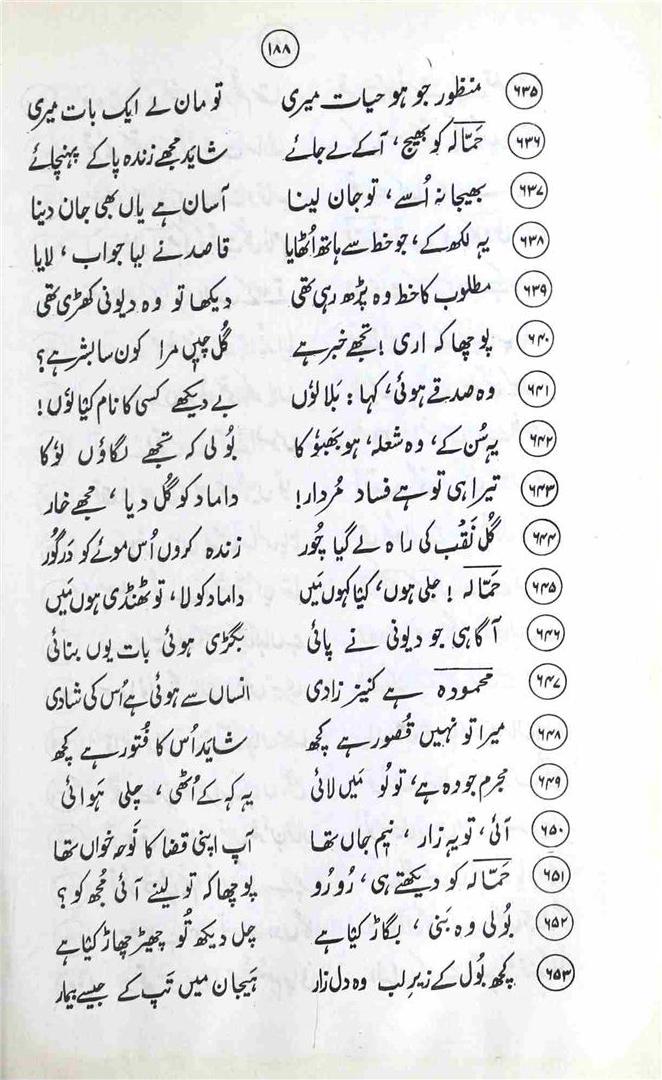 ۱۸۸
۶۳۵ منظور جو ہو حیات میری تو مان لے ایک بات میری
۶۳۶ حمّالہ کو بھیج، آکے لے جائے شاید مجھے زندہ پاکے پہنچائے
۶۳۷ بھیجا نہ اُسے، تو جان لینا آسان ہے یاں بھی جان دینا
۶۳۸ یہ لکھ کے، جو خط سے ہاتھ اُٹھایا قاصد نے لیا جواب، لایا
۶۳۹ مطلوب کا خط وہ پڑھ رہی تھی دیکھا تو وہ دیونی کھڑی تھی
۶۴۰ پوچھا کہ اری! تجھے خبر ہے گُل چیں مرا کون سا بشر ہے؟
۶۴۱ وہ صدقے ہوئی، کہا: بَلا لوٗں بے دیکھے کسی کا نام کیا لوٗں!
۶۴۲ یہ سُن کے، وہ شعلہ، ہو بھبوٗکا بوٗلی کہ تجھے لگاؤں لوٗکا
۶۴۳ تیرا ہی تو ہے فساد مُردار! داماد کو گُل دیا، مجھے خار
۶۴۴ گُل نَقْب کی راہ لے گیا چُور زندہ کروں اُس موئے کو دَرگُور
۶۴۵ حمّالہ! جلی ہوں، کیا کہوں مَیں داماد کو لا، تو ٹھنڈی ہوں مَیں
۶۴۶ آگاہی جو دیونی نے پائی بگڑی ہوئی بات یوں بنائی
۶۴۷ محمودہ ہے کنیز زادی انساں سے ہوئی ہے اُس کی شادی
۶۴۸ میرا تو نہیں قُصور ہے کچھ شاید اُس کا فُتور ہے کچھ
۶۴۹ مجرم جو وہ ہے، تو لُو مَیں لائی یہ کہہ کے اُٹھی، چلی ہوائی
۶۵۰ آئی، تو یہ زار، نیم جاں تھا آپ اپنی قضا کا نَوحہ خواں تھا
۶۵۱ حمّالہ کو دیکھتے ہی، رُو رُو پوچھا کہ تو لینے آئی مُجھ کو؟
۶۵۲ بُولی وہ بَنی، بگاڑ کیا ہے چل دیکھ تُو چھیڑ چھاڑ کیا ہے
۶۵۳ کچھ بُول کے زیرِ لب وہ دل زار ہیجان میں تَپ کے جیسے بیمار